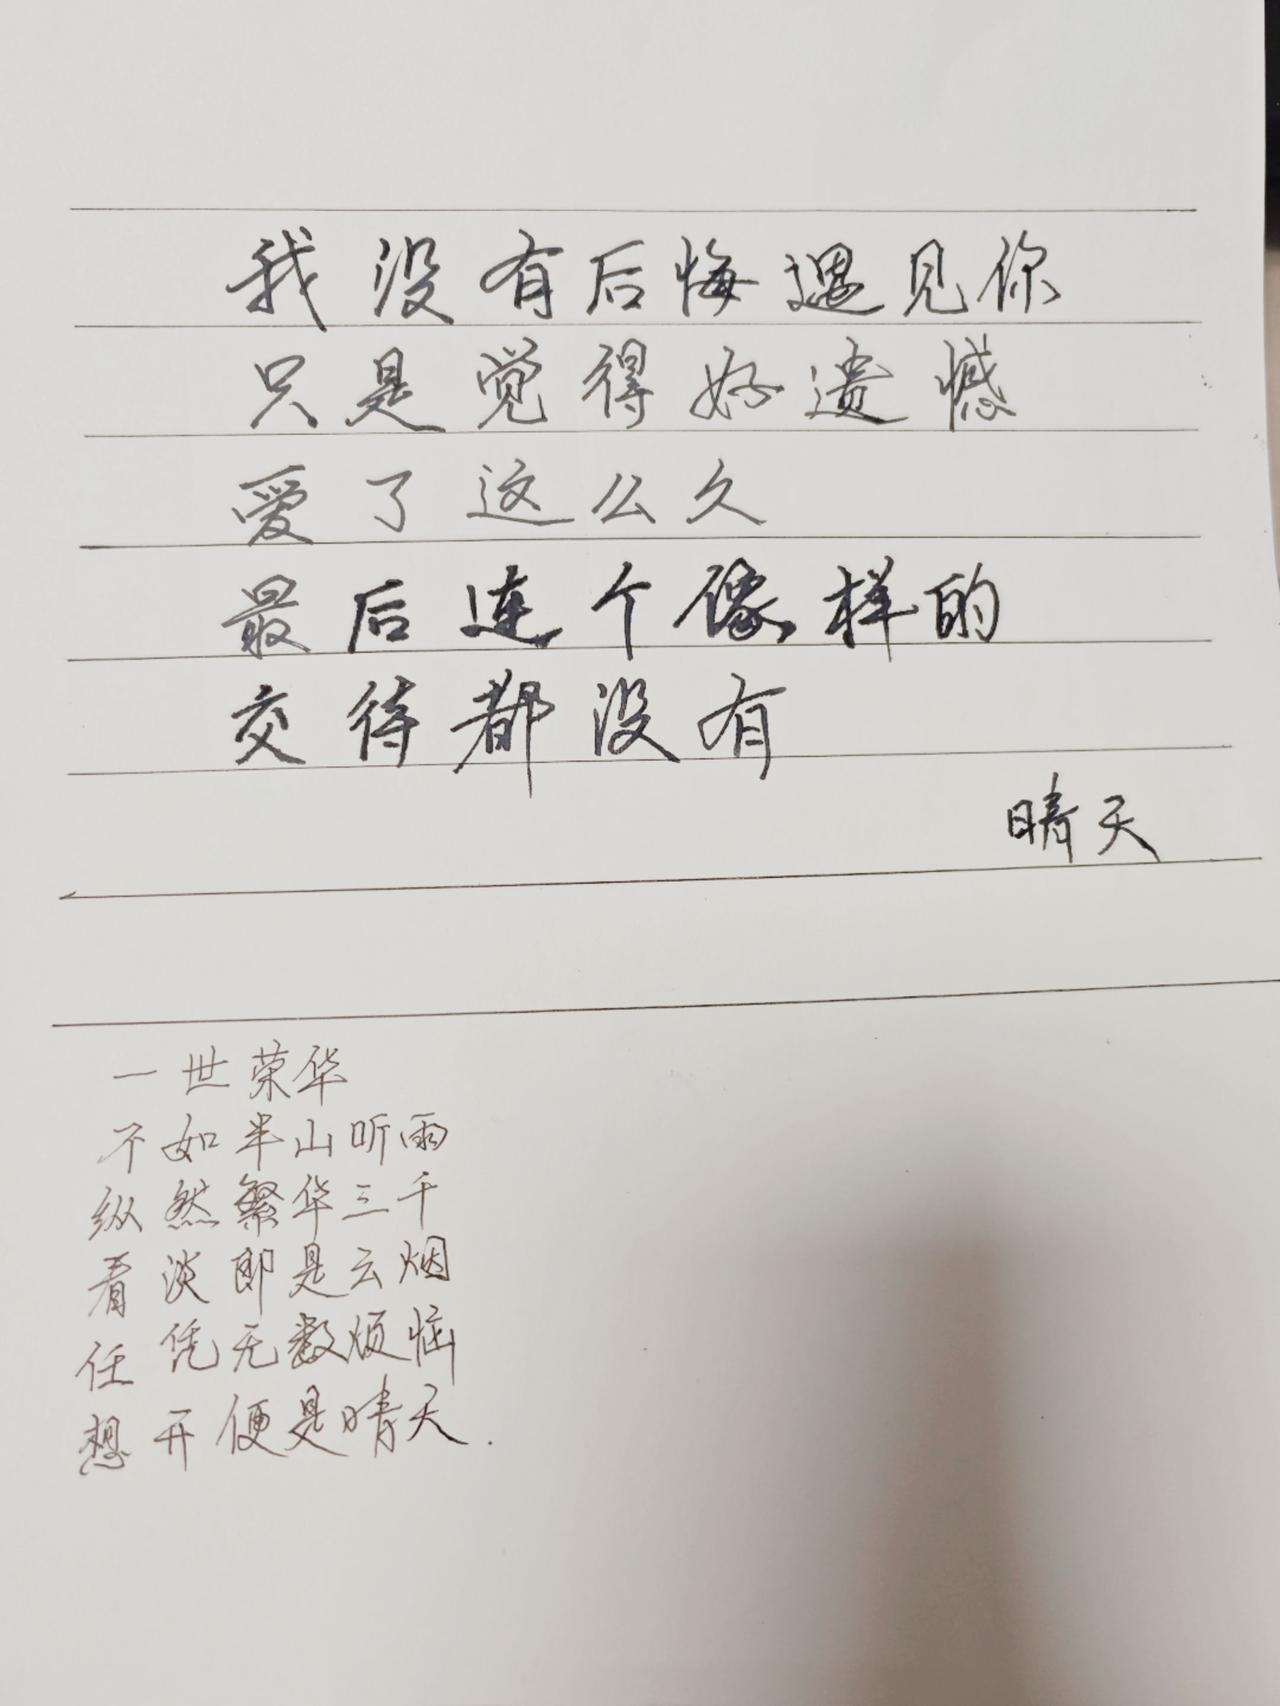 我没有后悔遇见你
只是觉得好遗憾
爱了这么久
最后连个像样的
交待都没有
晴天
一世荣华
不如半山听雨
纵然繁华三千
看淡即是云烟
任凭无数烦恼
想开便是晴天.